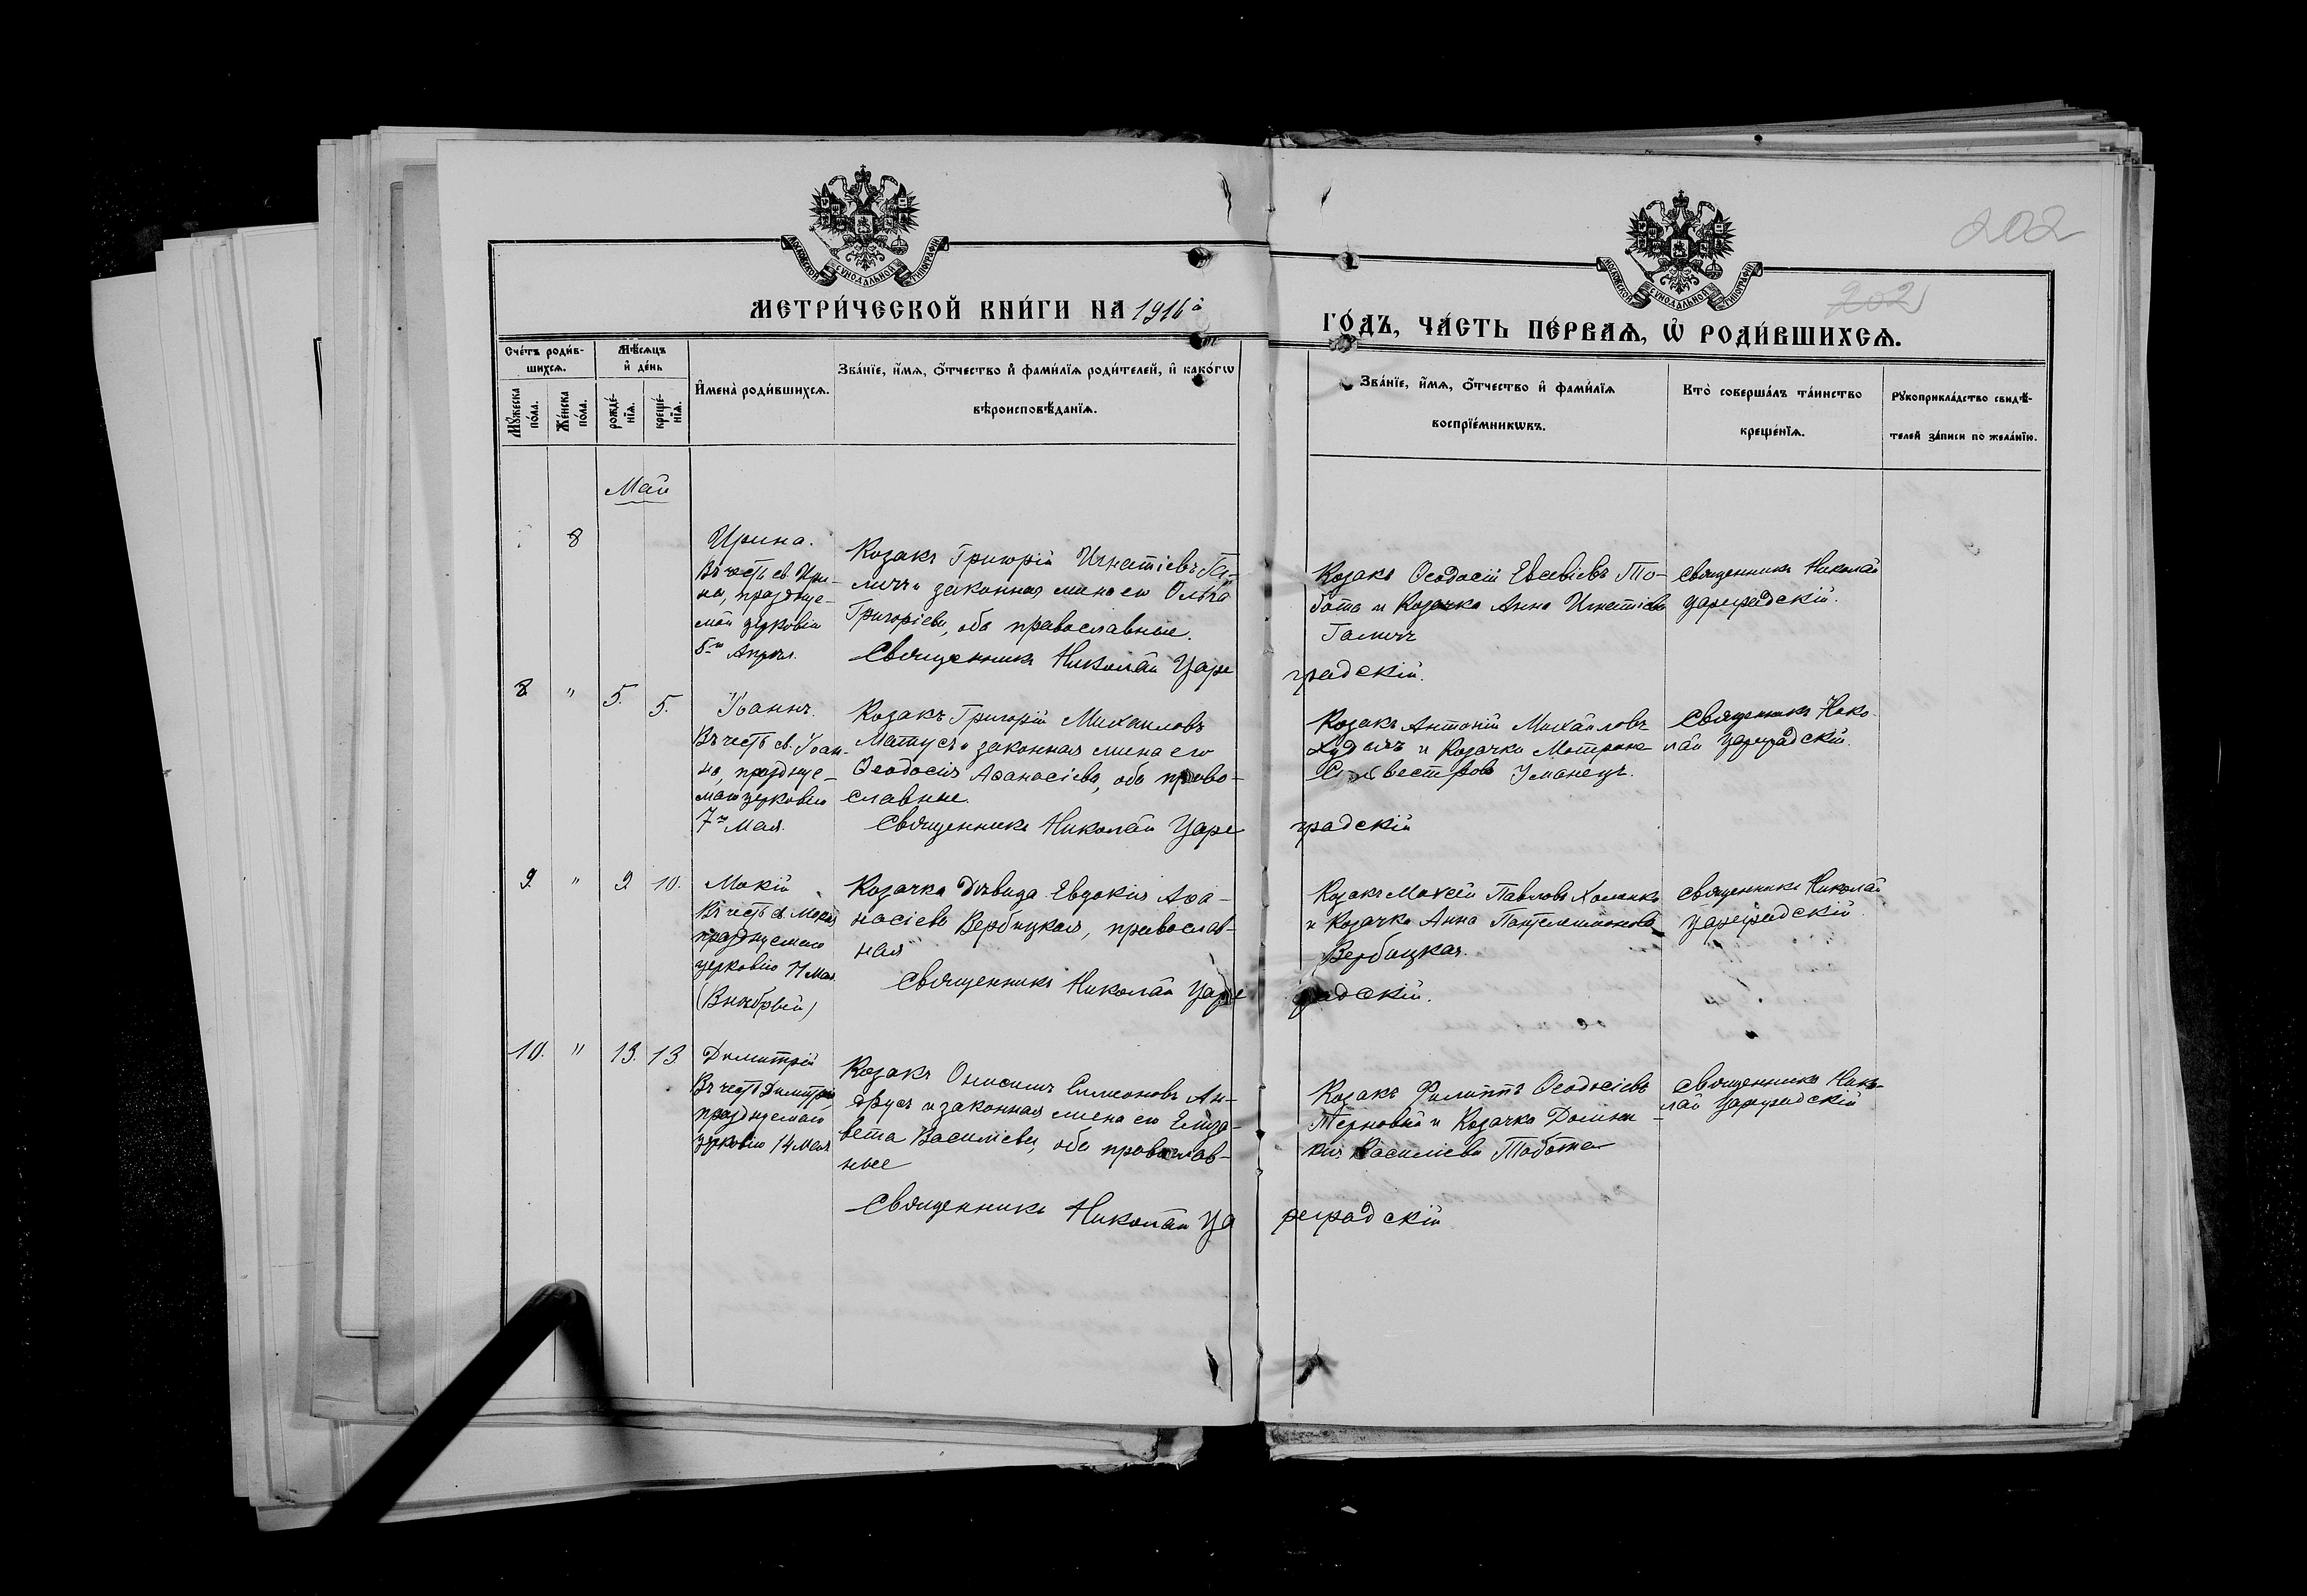 202
МОСКОВСКОЙ СѴНОДАЛЬНОЙ ТИПОГРАФІИ
МОСКОВСКОЙ СѴНОДАЛЬНОЙ ТИПОГРАФІИ
202
МЕТРИ́ЧЕСКОЙ КНИ́ГИ НА 1916 й
ГО́ДЪ, ЧА́СТЬ ПЕ́РВАѦ, Ѡ҆ РОДИ́ВШИХСѦ.
Сче́тъ роди́в-
шихсѧ.
Мѣ́сѧцъ
и҆ де́нь
Мꙋ́жеска
по́ла.
Же́нска
по́ла.
рожде́-
нїѧ.
креще́-
нїѧ.
И҆мена̀ роди́вшихсѧ.
Зва́нїе, и҆́мѧ, о҆́тчество и҆ фами́лїѧ роди́телей, и҆ како́гѡ
вѣроисповѣ́данїѧ.
Зва́нїе, и҆́мѧ, о҆́тчество и҆ фами́лїѧ
воспрїе́мникѡвъ.
Кто̀ соверша́лъ та́инство
креще́нїѧ.
Рꙋкоприкла́дство свидѣ́-
телей за́писи по жела́нїю.
Май
8
Ирина.
Въ честь св. Ири-
ны, празднуе-
мой церковію
Апрѣля.
Козакъ Григорій Игнатіевъ Га-
личъ и законная жена его Ольга
Григоріева, оба православные.
Священникъ Николай Царе
градскій.
Козакъ Ѳеодосій Евсевіевъ То-
бота и Козачка Анна Игнатіева
Галичъ
Священникъ Николай
Цареградскій.
8. " 5. 5.
Іоаннъ.
Въ честь св. Іоан-
на, праздуе-
маго церковію
7го Мая.
Козакъ Григорій Михаиловъ
Матусъ и законная жена его
Ѳеодосія Аѳанасіева, оба право-
славные.
Священникъ Николай Царе
градскій
Козакъ Антоній Михайловъ
и Козачка Матрона
Сильвестрова Уманецъ.
Священникъ Нико-
лай Цареградскій.
9. " 9 10.
Мокій
Въ честь св. Мокія
празднуемаго
церковію 11 Мая
(Внѣбрачный)
Козачка дѣвица Евдокія Аѳа-
насіева Вербицкая, православ-
ная
Священникъ Николай Царе
градскій.
Козакъ Моисей Павловъ
и Козачка Анна Пантелеимонова
Вербицкая.
Священникъ Николай
Цареградскій.
10. " 13. 13
Димитрій
Въ честь Димитрія,
празднуемаго
церковію 14 Мая
Козакъ Онисимъ Симеоновъ Ан-
друсъ и законная жена его Елиза-
вета Василіева, оба православ-
ные
Священникъ Николай Ца
реградскій
Козакъ Филиппъ Ѳеодосіевъ
Терновый и Козачка Домни-
кія Василіева Тобота
Священникъ Нико-
лай Цареградскій